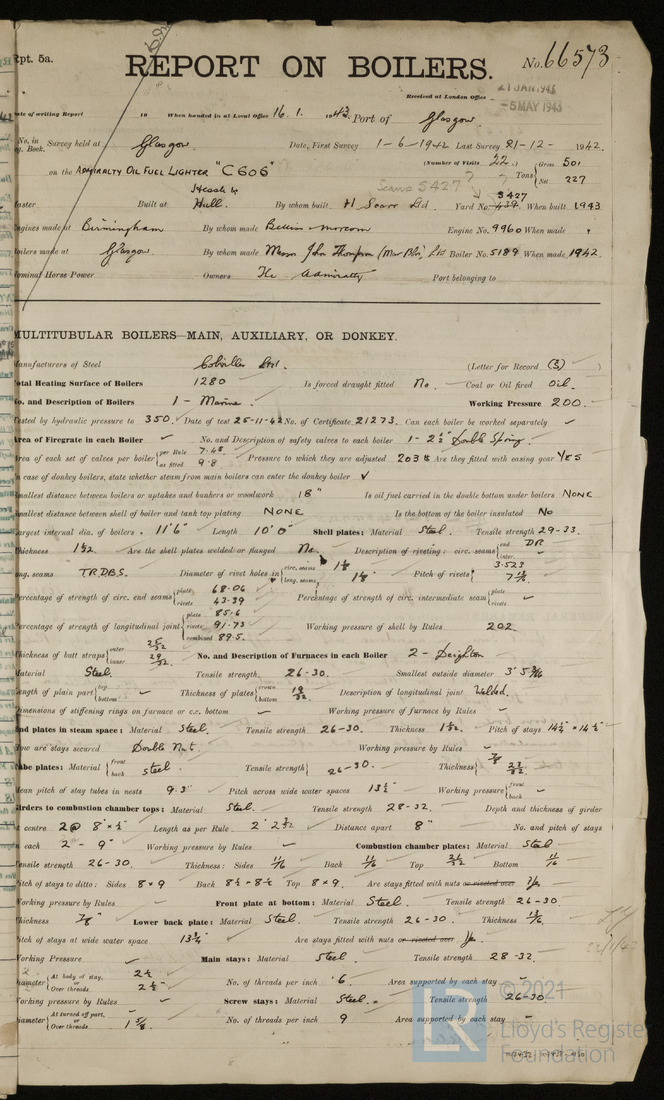 Rpt. 5a.
REPORT ON BOILERS.
No. 66573
Received at London Office
21 JAN 1943
-5 MAY 1943
ate of writing Report 19 When handed in at Local Office 16. 1. 1943 Port of Glasgow
No. in Survey held at Glasgow. Date, First Survey 1-6-1942 Last Survey 21-12-1942.
eg. Book. (Number of Visits 22.)
on the ADMIRALTY OIL FUEL LIGHTER "C606" Tons { Gross 501 Net 227
Scarrs S427 ?
Hessle by S427
aster Built at Hull. By whom built H Scarr Ltd. Yard No. 439. When built 1943
ngines made at Birmingham By whom made Belliss-Morcom Engine No. 9960 When made "
oilers made at Glasgow By whom made Messrs John Thompson (Mar Blrs) Ltd Boiler No. 5189 When made 1942.
ominal Horse Power Owners The Admiralty Port belonging to
MULTITUBULAR BOILERS MAIN, AUXILIARY, OR DONKEY.
anufacturers of Steel Colvilles Ltd. (Letter for Record (S) )
otal Heating Surface of Boilers 1280 Is forced draught fitted No. Coal or Oil fired Oil.
o. and Description of Boilers 1 - Marine. Working Pressure 200.
ested by hydraulic pressure to 350. Date of test 25-11-42 No. of Certificate 21273. Can each boiler be worked separately ✓
Area of Firegrate in each Boiler ✓ No. and Description of safety valves to each boiler 1 - 2½" Double Spring.
rea of each set of valves per boiler { per Rule 7.48. as fitted 9.8 Pressure to which they are adjusted 203 lb Are they fitted with easing gear Yes
n case of donkey boilers, state whether steam from main boilers can enter the donkey boiler ✓
mallest distance between boilers or uptakes and bunkers or woodwork 18" Is oil fuel carried in the double bottom under boilers NONE
mallest distance between shell of boiler and tank top plating NONE Is the bottom of the boiler insulated No
argest internal dia. of boilers 11'6" Length 10'0" Shell plates: Material Steel. Tensile strength 29-33.
hickness 1½ Are the shell plates welded or flanged No. Description of riveting: circ. seams { end DR inter. ✓
ong. seams T.R.D.B.S. Diameter of rivet holes in { circ. seams long. seams Pitch of rivets { 3.523
ercentage of strength of circ. end seams { plate 68.06 rivets 43.39 Percentage of strength of circ. intermediate seam { plate rivets ✓
ercentage of strength of longitudinal joint { plate 85.6 rivets 91.73 combined 89.5. Working pressure of shell by Rules 202
hickness of butt straps { outer 25/32 inner 29/32. No. and Description of Furnaces in each Boiler 2 - Deighton
aterial Steel. Tensile strength. 26-30. Smallest outside diameter 3' 5
ength of plain part { top bottom ✓ Thickness of plates { crown bottom 19/32 Description of longitudinal joint Welded.
imensions of stiffening rings on furnace or c.c. bottom ✓ Working pressure of furnace by Rules ✓
nd plates in steam space: Material Steel. Tensile strength 26-30. Thickness 1 Pitch of stays 14½ × 14½
ow are stays secured Double Nut. Working pressure by Rules ✓
ube plates: Material { front back Steel Tensile strength { 26-30. Thickness { 7/8 23/32.
ean pitch of stay tubes in nests 9.3" Pitch across wide water spaces 13½ Working pressure { front back ✓
irders to combustion chamber tops: Material Steel. Tensile strength 28-32. Depth and thickness of girder
t centre 2@ 8" × ½ Length as per Rule 2' 2 Distance apart 8" No. and pitch of stays
n each 2 - 9" Working pressure by Rules ✓ Combustion chamber plates: Material Steel
ensile strength 26-30. Thickness: Sides 11/16 Back 11/16 Top 21/32 Bottom 11/16
itch of stays to ditto: Sides 8 × 9 Back 8½ × 8½ Top 8 × 9. Are stays fitted with nuts or riveted over Yes.
orking pressure by Rules ✓ Front plate at bottom: Material Steel. Tensile strength 26-30.
hickness 7/8" Lower back plate: Material Steel. Tensile strength 26-30. Thickness 13/16.
itch of stays at wide water space 13¾ Are stays fitted with nuts or riveted over Yes.
orking Pressure ✓ Main stays: Material Steel. Tensile strength 28-32.
iameter { At body of stay, or Over threads 2½ 2½ No. of threads per inch 6. Area supported by each stay ✓
orking pressure by Rules ✓ Screw stays: Material Steel. Tensile strength 26-30
iameter { At turned off part, or Over threads 1 5/8. No. of threads per inch 9 Area supported by each stay ✓
© 2021
Lloyd's Register
Foundation